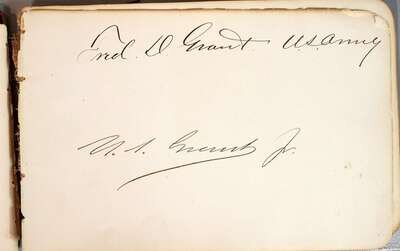 Fred. D Grant. U.S. Army
U. S. Grant Jr.